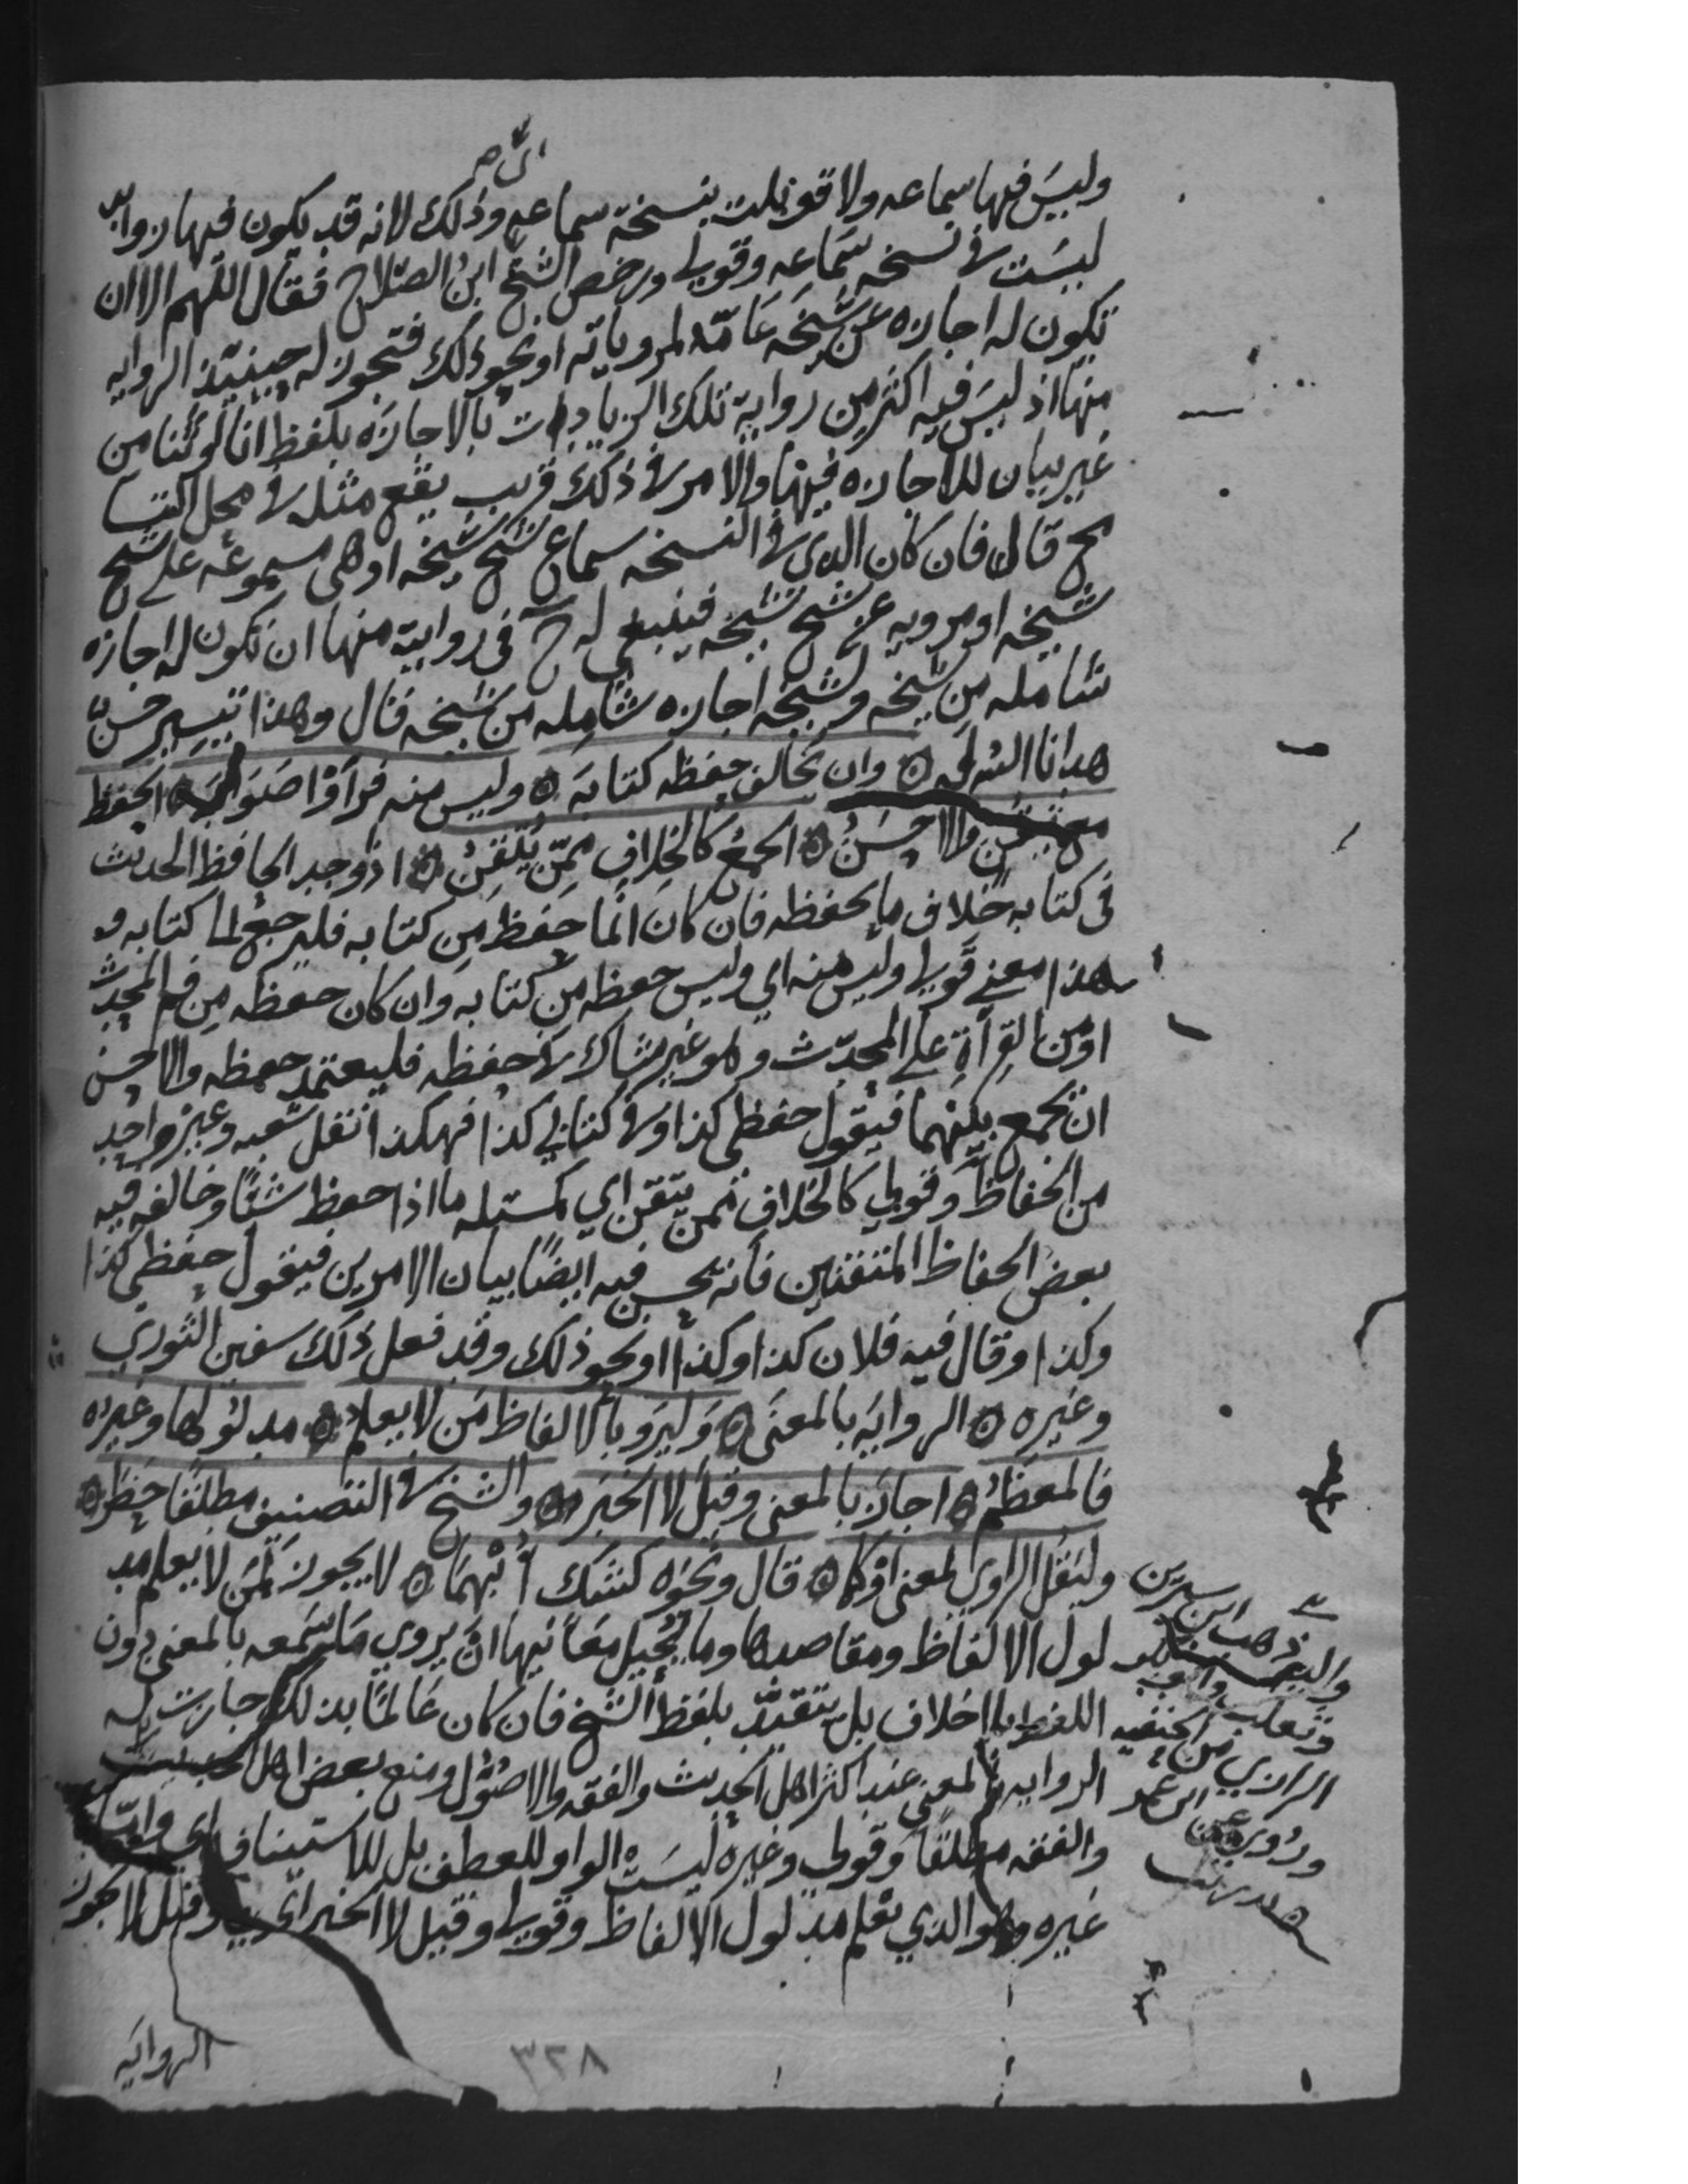 وليس فيها سماعه ولا قوبلت بنسخة سماعه وذلك لانه قد يكون فيها روايه
ليست في نسخه سماعه وقولي ورخص الشيخ ابن الصلاح فقال اللهم الا ان
تكون له اجازه عن شيخه عامّة لمروياته او نحو ذلك فتجوز له حينئذ الروايه
منها اذ ليس فيه اكثر من رواية تلك الزيادات بالاجازه بلفظ انا او ثنا من
غير بيان للاجازه فيها والامر في ذلك قريب يقع مثله في محل التسامح
قال فان كان الذي في النسخه سماع شيخ شيخه او هي مسموعه على شيخ
شيخه او مرويه عن شيخ شيخه فينبغي له ح في رواية منها ان تكون له اجازه
شامله من شيخه ولشيخه اجازه شامله من شيخه قال وهذا تيسير حسن
هدانا الله له ۞ وان تخالف حفظه كتابه ۞ وليس منه فرأوا صوابه ۞ الحفظ
مع تيقن والاحسن ۞ الجمع كالخلاف ممن يتقن ۞ اذ وجد الحافظ الحديث
في كتابه خلاف ما يحفظه فان كان انما حفظ من كتابه فليرجع الى كتابه و
هذا معنى قولي وليس منه اي وليس حفظه من كتابه وان كان حفظه من فم المحدث
او من القرآة على المحدّث وهو غير شاك في حفظه فليعتمد حفظه والاحسن
ان يجمع بينهما فيقول حفظي كذا وفي كتابي كذا فهكذا نقل شعبه وغير واحد
من الحفاظ وقولي كالخلاف ممن يتقن اي كمسئله ما اذا حفظ شئا وخالفه فيه
بعض الحفاظ المتقنين فانه يحسن فيه ايضا بيان الامرين فيقول حفظي كذا
وكذا وقال فيه فلان كذا وكذا او نحو ذلك وقد فعل ذلك سفين الثوري
وغيره ۞ الروايه بالمعنى ۞ وليرو بالالفاظ من لا يعلم ۞ مدلولها وغيره
فالمعظم ۞ اجاز بالمعنى وقيل لا الخبر ۞ والشيخ في التصنيف مطلقا حظر ۞
وليقل الراوي لمعنى او كما ۞ قال ونحوه كشك ابهما ۞ لا يجوز لمن لا يعلم مد
لول الالفاظ ومقاصدها وما يحيل معانيها ان يروي ما سمعه بالمعنى دون
اللفظ بلا خلاف بل يتقيد بلفظ الشيخ فان كان عالما بذلك جازت له
الروايه بالمعنى عند اكثر اهل الحديث والفقه والاصول ومنع بعض اهل الحديث
والفقه مطلقا وقولي وغيره ليست الواو للعطف بل للاستيناف اي واما
غيره وهو الذي يعلم مدلول الالفاظ وقولي وقيل لا الخبر اي وقيل لا يجوز
واليه ذهب ابن سيرين
وثعلب
الرازي من الحنفيه
وروي عن ابن عمر
الروايه
٣٢٨